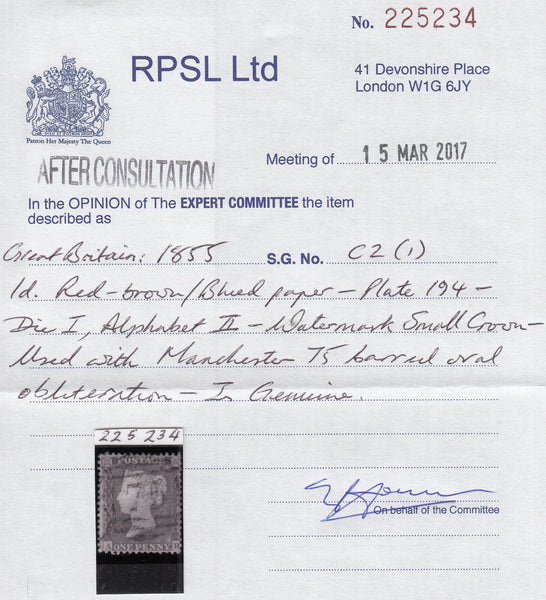 No. 225234
RPSL Ltd
41 Devonshire Place
London W1G 6JY
Patron Her Majesty The Queen
AFTER CONSULTATION
Meeting of 15 MAR 2017
In the OPINION of The EXPERT COMMITTEE the item
described as
Great Britain: 1855 S.G. No. C2(1)
1d. Red-brown/Blued paper - Plate 194 -
Die I, Alphabet II - Watermark Small Crown -
Used with Manchester 75 barred oval
obliteration - Is Genuine.
225 234
POSTAGE
ONE PENNY
On behalf of the Committee